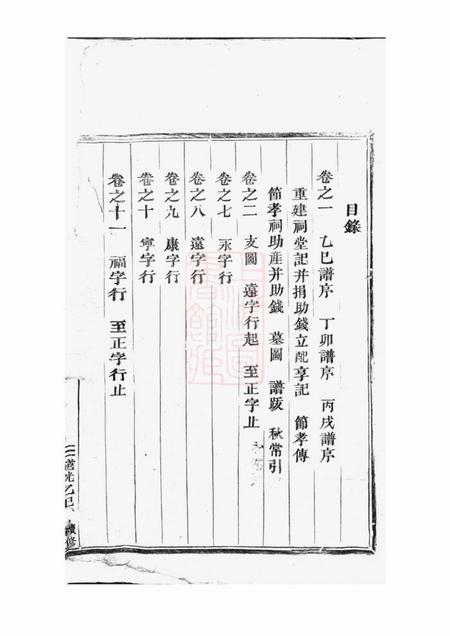 目錄
卷之一 乙巳譜序 丁卯譜序 丙戌譜序
重建祠堂記并捐助錢立配享記 節孝傳
節孝祠助產并助錢 墓圖 譜跋 秋常引
卷之二 支圖 遠字行起 至正字止
卷之七 永字行
卷之八 遠字行
卷之九 康字行
卷之十 寧字行
卷之十一 福字行 至正字行止
乙巳 續修